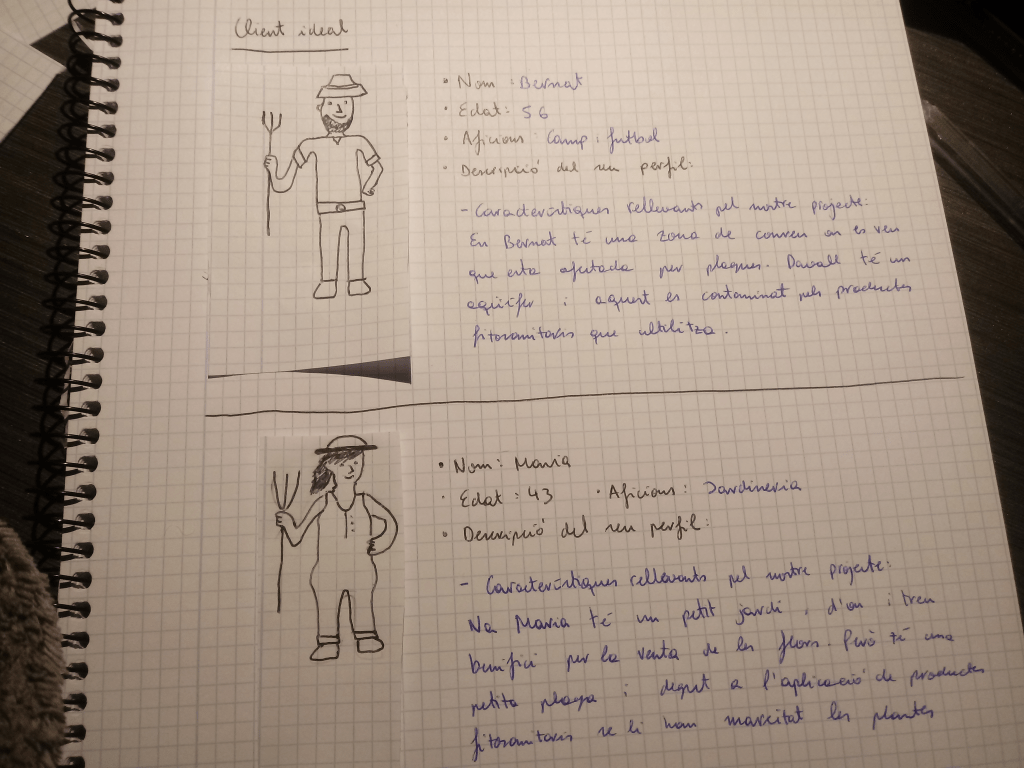 Client ideal
• Nom : Bernat
• Edat : 56
• Aficions : Camp i futbol
• Descripció del seu perfil:
- Característiques rellevants pel nostre projecte:
En Bernat té una zona de conreu on es veu
que esta afectada per plagues. Davall té un
aqüífer i aquest es contaminat pels productes
fitosanitaris que utilitza.
• Nom : Maria
• Edat : 43 • Aficions : Jardineria
• Descripció del seu perfil:
- Característiques rellevants pel nostre projecte:
Na Maria té un petit jardí, d'on i treu
benifici per la venta de les flors. Però té una
petita plaga i degut a l'aplicació de productes
fitosanitaris se li han marcitat les plantes